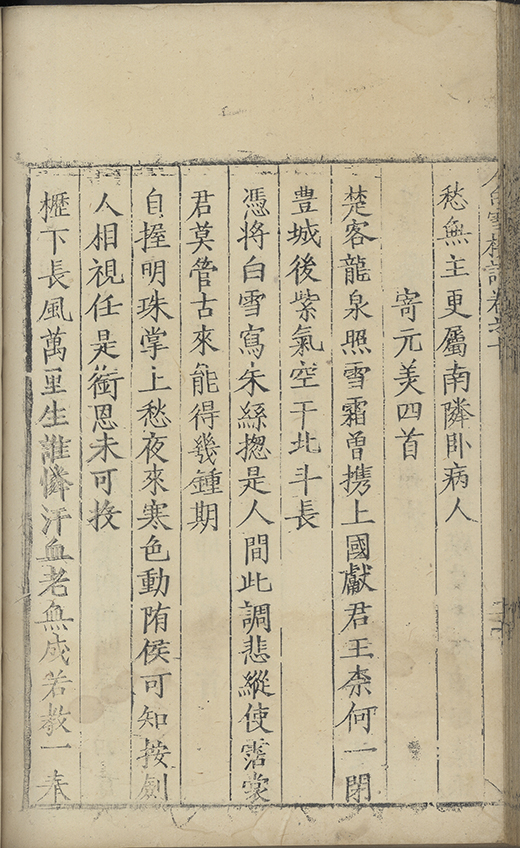 白雪樓詩卷之十
愁無主更屬南隣臥病人
寄元美四首
楚客龍泉照雪霜曾携上國獻君王柰何一閉
豊城後紫氣空干北斗長
憑將白雪寫朱絲揔是人間此調悲縱使霑裳
君莫管古來能得幾鍾期
自握明珠掌上愁夜來寒色動隋侯可知按劍
人相視任是銜恩未可投
櫪下長風萬里生誰憐汗血老無成若教一